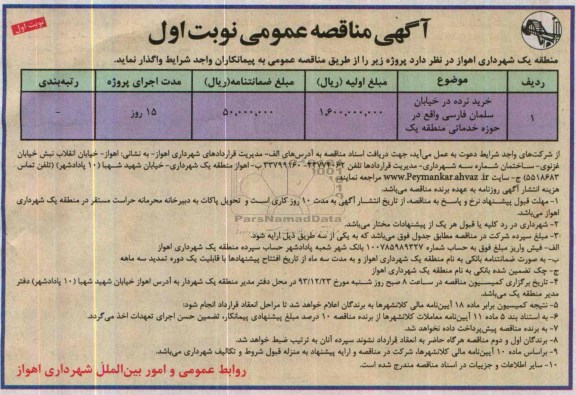 آگهی مناقصه عمومی نوبت اول
نوبت اول
منطقه یک شهرداری اهواز در نظر دارد پروژه زیر را از طریق مناقصه عمومی به پیمانکاران واجد شرایط واگذار نماید.
ردیف موضوع مبلغ اولیه (ریال) مبلغ ضمانتنامه(ریال) مدت اجرای پروژه رتبه‌بندی
۱ خرید نرده در خیابان سلمان فارسی واقع در حوزه خدماتی منطقه یک ۱,۶۰۰,۰۰۰,۰۰۰ ۵۰,۰۰۰,۰۰۰ ۱۵ روز -
از شرکت‌های واجد شرایط دعوت به عمل می‌آید، جهت دریافت اسناد مناقصه به آدرس‌های الف- مدیریت قراردادهای شهرداری اهواز- به نشانی: اهواز- خیابان انقلاب نبش خیابان
غزنوی- ساختمان شماره سه شهرداری- مدیریت قراردادها تلفن ب- اهواز منطقه یک شهرداری- خیابان شهید شهبا (۱۰ پادادشهر) (تلفن تماس
۵۵۱۸۶۸۳) ج- سایت www.Peymankar.ahvaz.ir مراجعه نمایند.
هزینه انتشار آگهی روزنامه به عهده برنده مناقصه می‌باشد.
۱- مهلت قبول پیشنهاد نرخ و پاسخ به مناقصه، از تاریخ انتشار آگهی به مدت ۱۰ روز کاری است و تحویل پاکات به دبیرخانه محرمانه حراست مستقر در منطقه یک شهرداری
اهواز می‌باشد.
۲- شهرداری در رد کلیه یا قبول هر یک از پیشنهادات مختار می‌باشد.
۳- مبلغ سپرده شرکت در مناقصه مطابق جدول فوق می‌باشد که به یکی از سه طریق ذیل ارایه شود.
الف- فیش واریز مبلغ فوق به حساب شماره ۱۰۰۷۸۵۹۸۹۳۲۷ بانک شهر شعبه پادادشهر حساب سپرده منطقه یک شهرداری اهواز
ب- به صورت ضمانتنامه بانکی به نام منطقه یک شهرداری اهواز و به مدت سه ماه از تاریخ افتتاح پیشنهادها با قابلیت یک دوره تمدید سه ماهه
ج- چک تضمین شده بانکی به نام منطقه یک شهرداری اهواز
۴- تاریخ برگزاری کمیسیون مناقصه در ساعت ۸ صبح روز شنبه مورخ ۹۳/۱۲/۲۳ در محل دفتر مدیر منطقه یک شهردار به آدرس اهواز خیابان شهید شهبا (۱۰ پادادشهر) دفتر
مدیر منطقه یک می‌باشد.
۵- نتیجه کمیسیون برابر ماده ۱۸ آیین‌نامه مالی کلانشهرها به برندگان اعلام خواهد شد تا مراحل انعقاد قرارداد انجام شود:
۶- به استناد بند ۵ ماده ۱۱ آیین‌نامه معاملات کلانشهرها از برنده مناقصه ۱۰ درصد مبلغ پیشنهادی پیمانکار، تضمین حسن اجرای تعهدات اخذ می‌گردد.
۷- به برنده مناقصه پیش‌پرداخت داده نخواهد شد.
۸- برندگان اول و دوم مناقصه هرگاه حاضر به انعقاد قرارداد نشوند سپرده آنان به ترتیب ضبط خواهد شد.
۹- براساس ماده ۱۰ آیین‌نامه مالی کلانشهرها، شرکت در مناقصه و ارایه پیشنهاد به منزله قبول شروط و تکالیف شهرداری می‌باشد.
۱۰- سایر اطلاعات و جزییات در اسناد مناقصه مندرج شده است.
روابط عمومی و امور بین‌الملل شهرداری اهواز
ParsNamadData